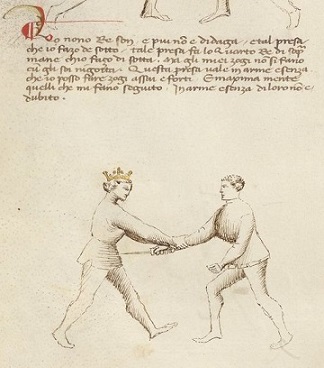 Lo nono Re son e piu no e di daga. e tal presa
che io fazo de sotto. tale presa fa lo Quarto Re di sop
mane chio fazo di sotta. Ma gli miei zogi no si fano
cu gli soi nigotta. Questa presa vale in arme e senza
che io posso fare zogi assai e forti. E maxima mente
quelli che mi fano seguito. In arme e senza di loro no e
dubito.